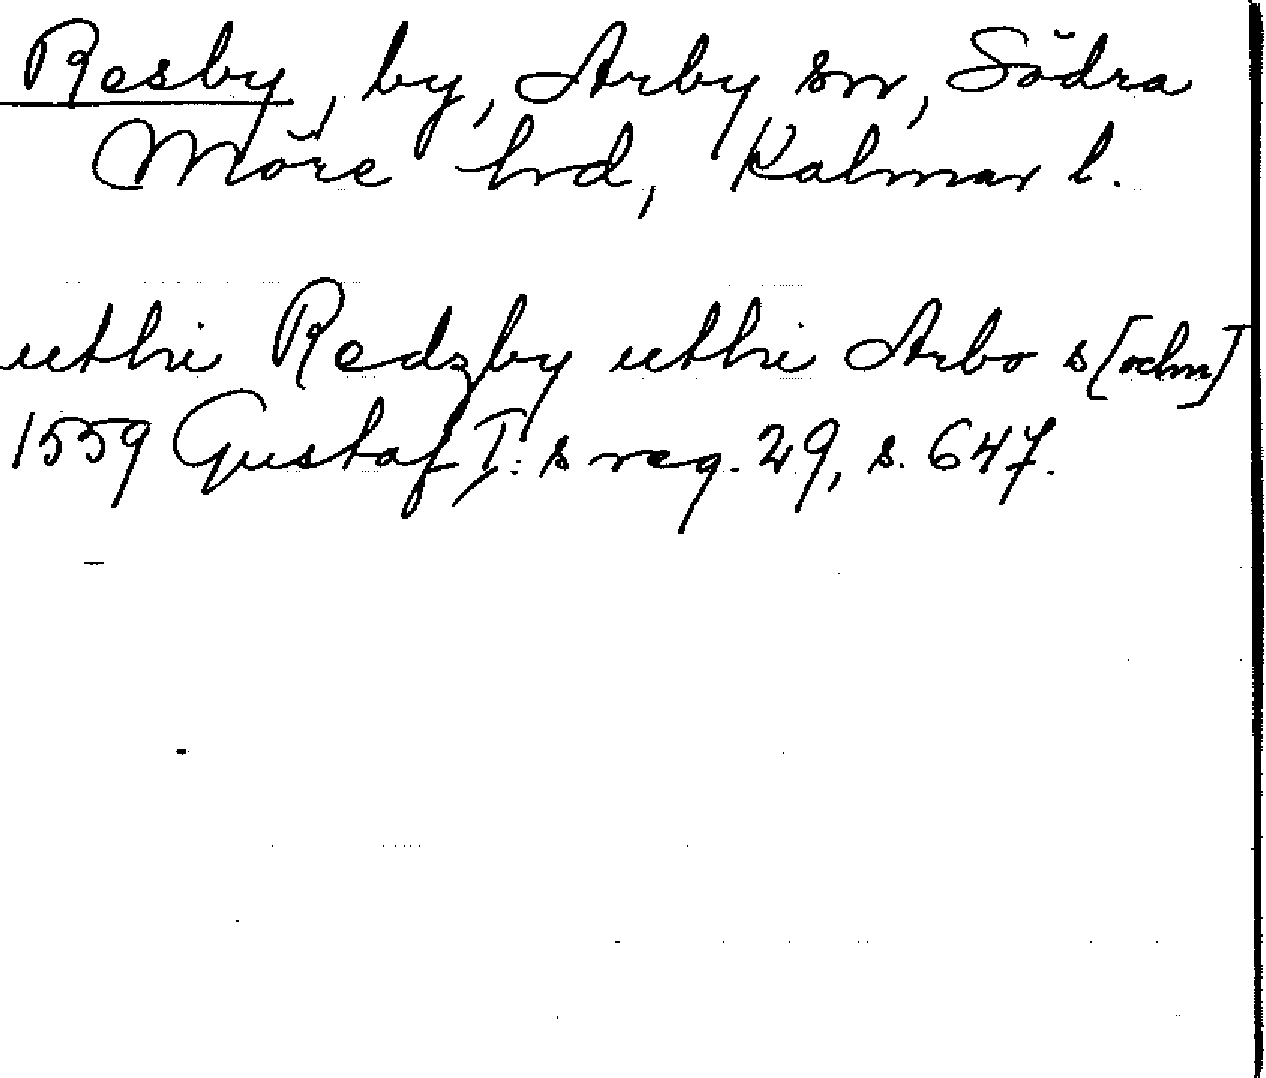 Resby, by, Arby sn, Södra
Möre hrd, Kalmar l.
uthi Redzby uthi Arbo s[ochn]
1559 Gustaf I:s reg. 29, s. 647.